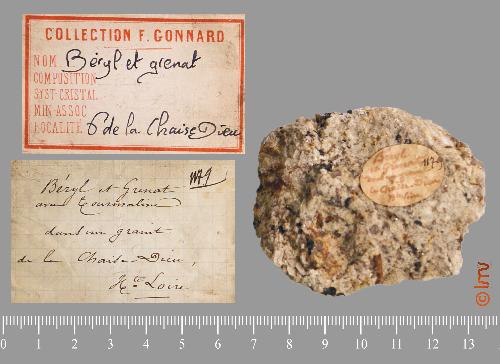 COLLECTION F. GONNARD
NOM Béryl et grenat
COMPOSITION
SYST-CRISTAL
MIN-ASSOC
LOCALITÉ de la Chaise Dieu
Béryl et Grenat 1179
avec Tourmaline
dans un granit
de la Chaise-Dieu,
Hte Loire
© lmv
0 1 2 3 4 5 6 7 8 9 10 11 12 13